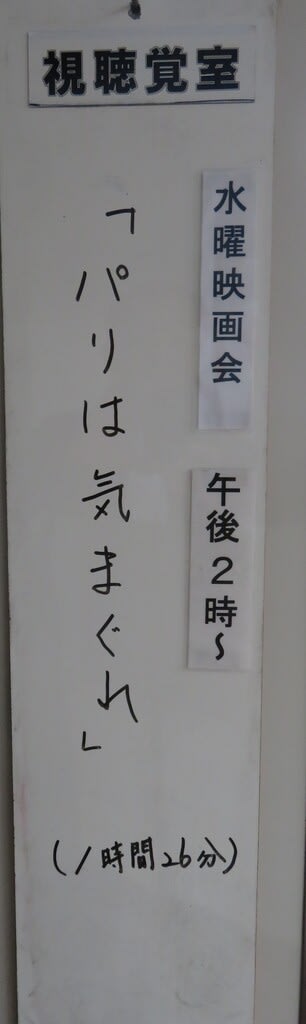 視聴覚室
水曜映画会
午後2時~
「パリは気まぐれ」
(1時間26分)